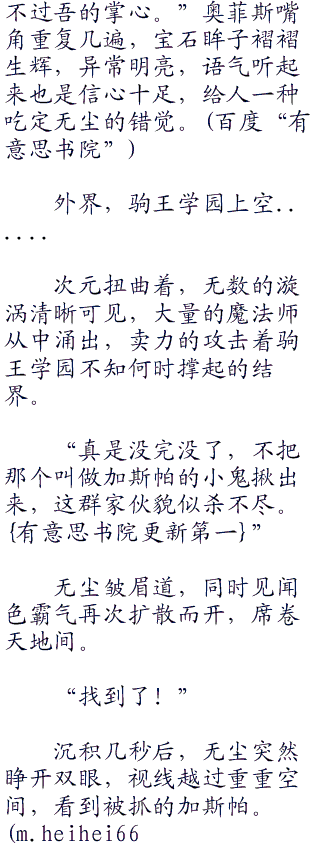 不过吾的掌心。”奥菲斯嘴
角重复几遍，宝石眸子褶褶
生辉，异常明亮，语气听起
来也是信心十足，给人一种
吃定无尘的错觉。(百度“有
意思书院”)
外界，驹王学园上空..
....
次元扭曲着，无数的漩
涡清晰可见，大量的魔法师
从中涌出，卖力的攻击着驹
王学园不知何时撑起的结
界。
“真是没完没了，不把
那个叫做加斯帕的小鬼揪出
来，这群家伙貌似杀不尽。
{有意思书院更新第一}”
无尘皱眉道，同时见闻
色霸气再次扩散而开，席卷
天地间。
“找到了！”
沉积几秒后，无尘突然
睁开双眼，视线越过重重空
间，看到被抓的加斯帕。
(m.heihei66